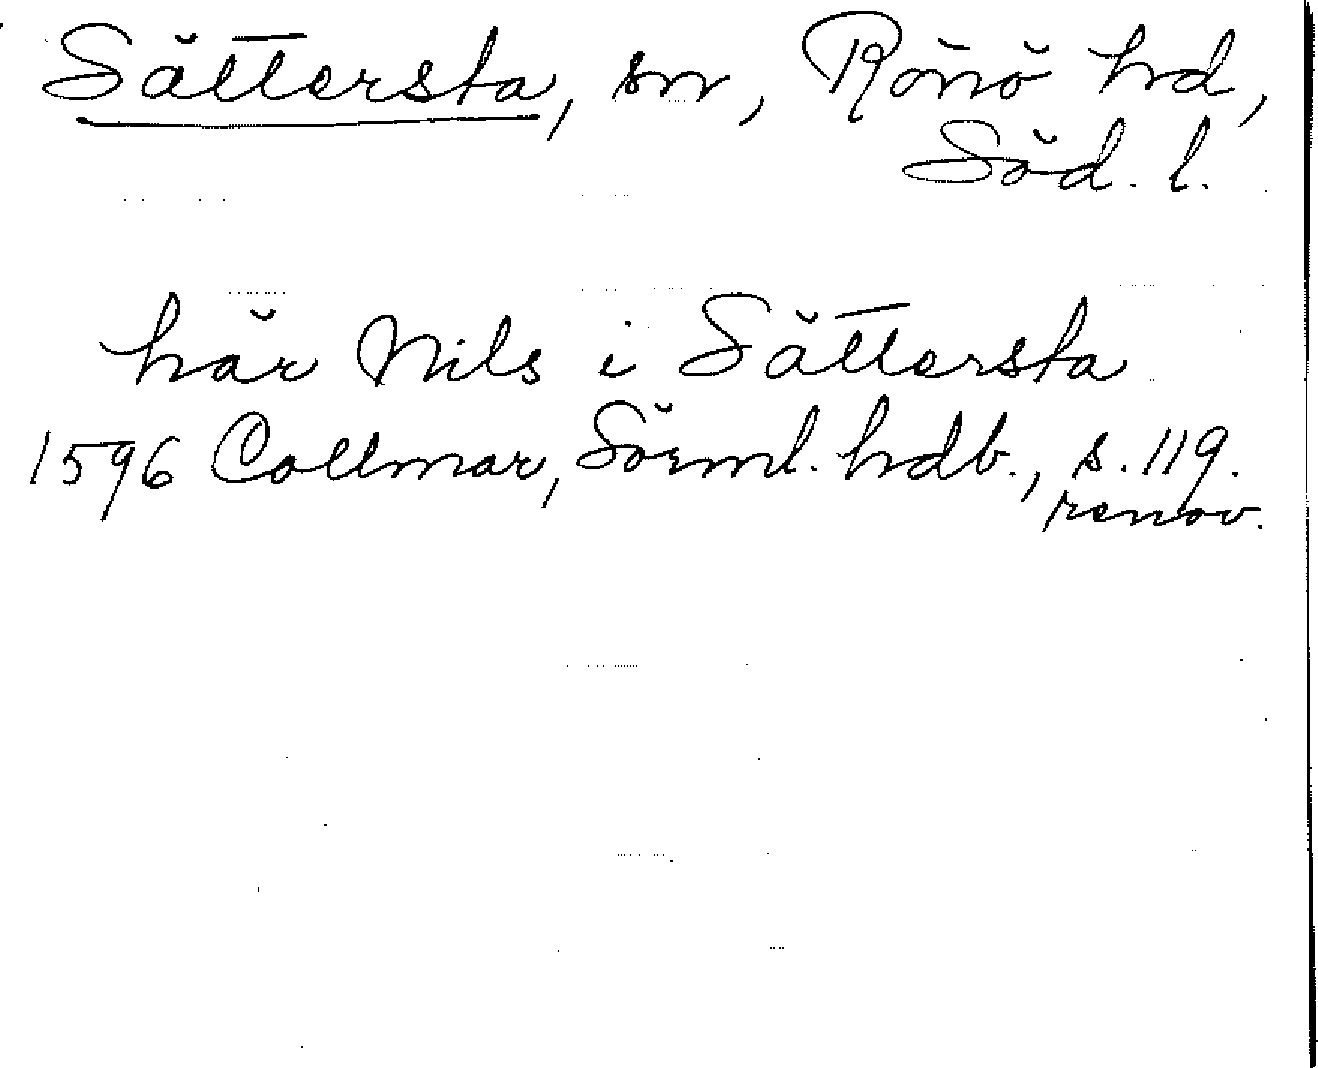 Sättersta, sn, Rönö hd,
Söd. l.
här Nils i Sättersta
1596 Collmar, Sörml. hdb., s. 119.
renov.